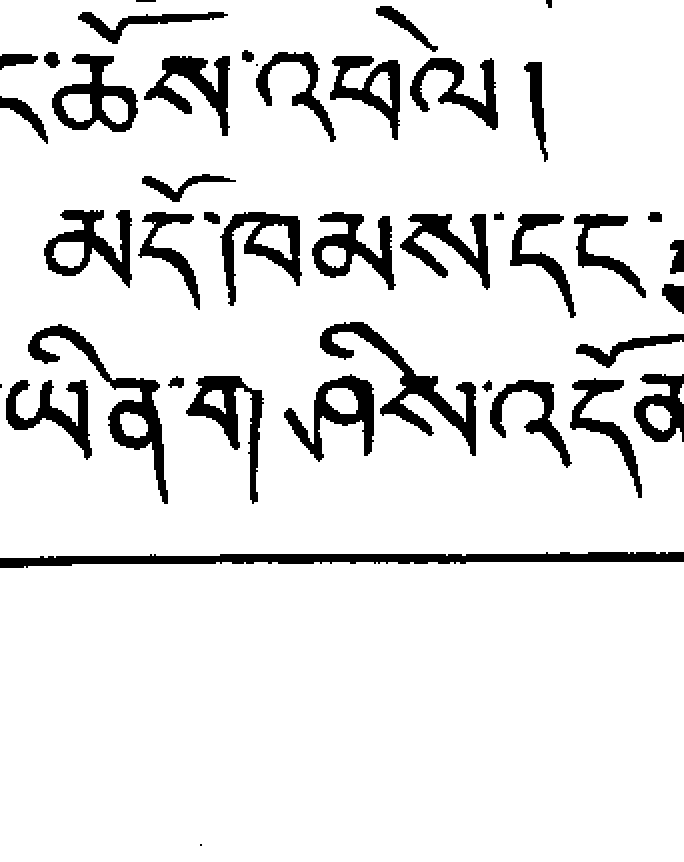 ང་ཆོས་འཕེལ།
མདོ་ཁམས་དང་
ཡིན་ག ཤིས་འདོན